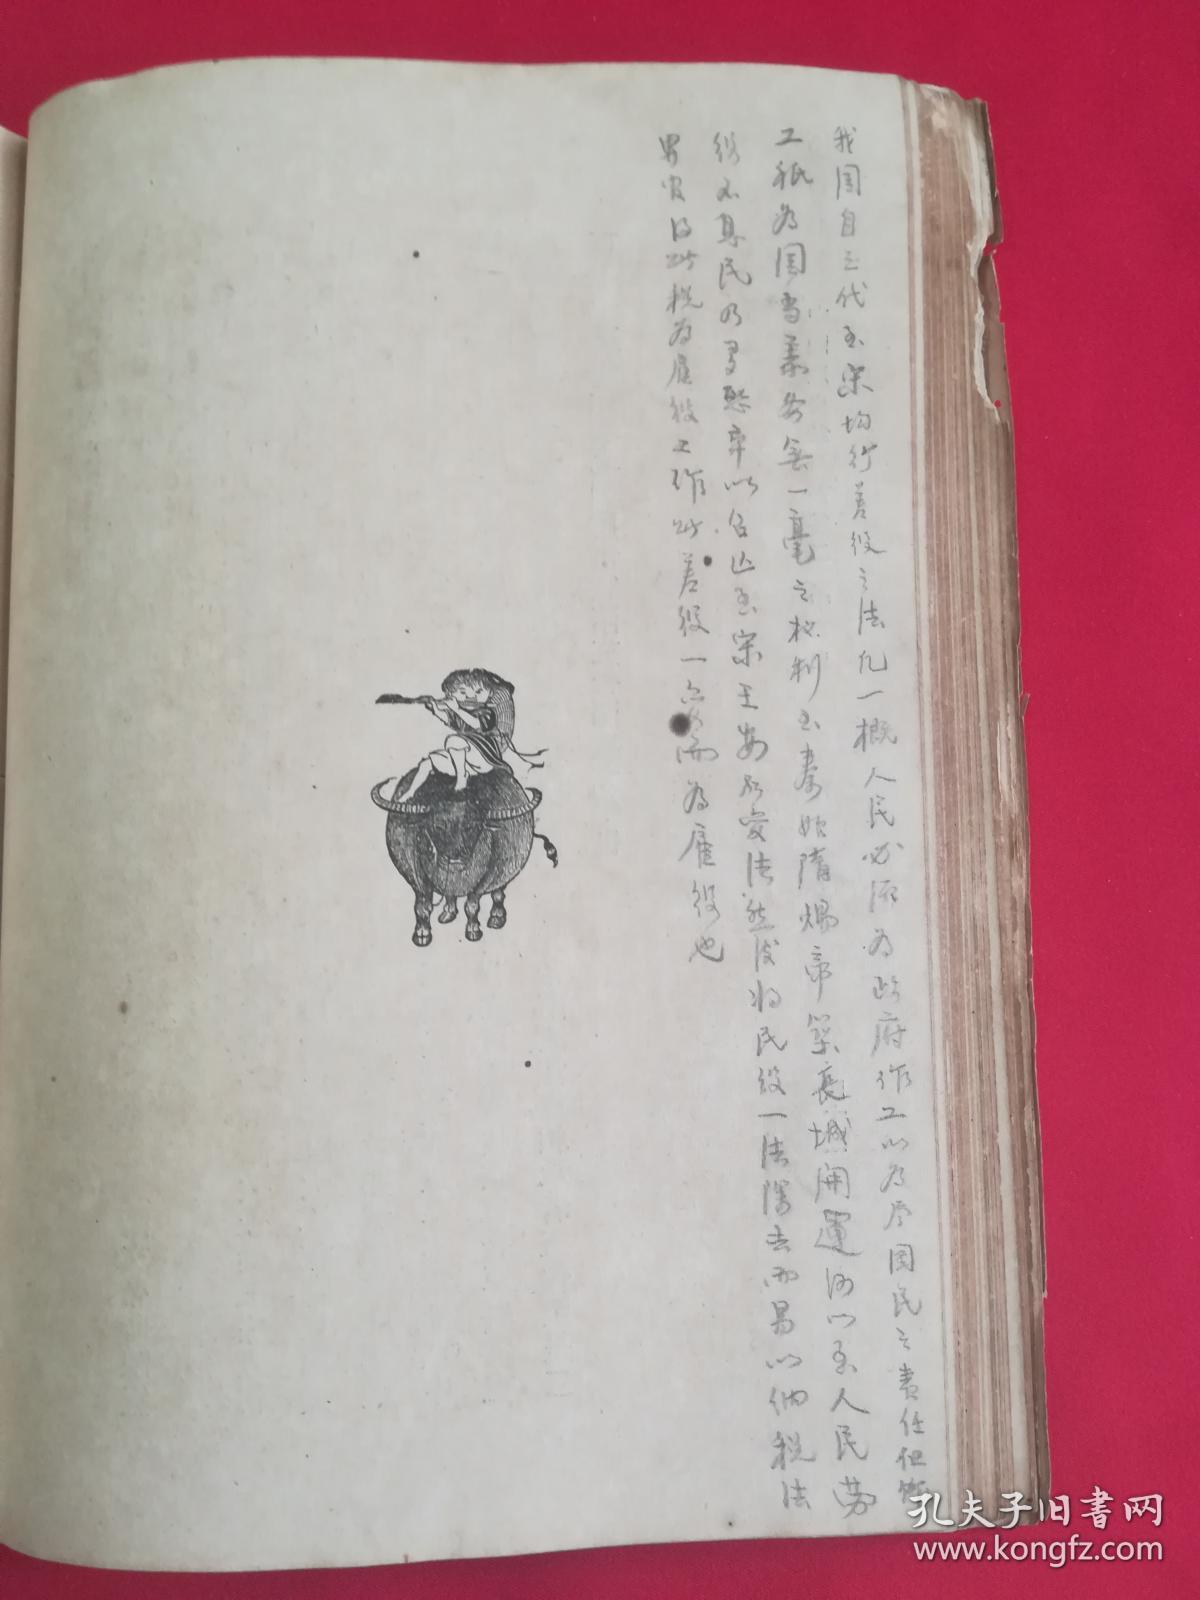 我国自三代至宋均行差役之法凡一概人民必须为政府作工以为尽国民之责任但做
工祇为国当义务无一毫之权利至秦始隋炀帝筑長城開運河以至人民劳
役不息民乃多愁卒以召亡至宋王安石变法然後将民役一法除去而易以纳税法
男官得此税为雇役工作此差役一变而為雇役也
孔夫子旧书网
www.kongfz.com